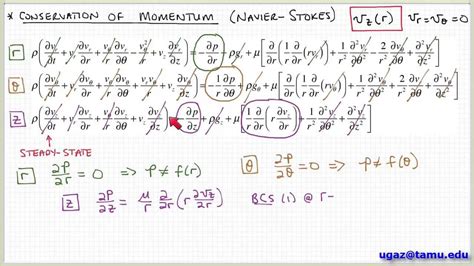 * CONSERVATION OF MOMENTUM (NAVIER-STOKES) v_z(r) v_r=v_θ=0
r ρ(∂v_r/∂t + v_r ∂v_r/∂r + v_θ/r ∂v_r/∂θ - v_θ²/r + v_z ∂v_r/∂z) = -∂p/∂r + ρg_r + μ[∂/∂r(1/r ∂/∂r(rv_r)) + 1/r² ∂²v_r/∂θ² - 2/r² ∂v_θ/∂θ + ∂²v_r/∂z²]
θ ρ(∂v_θ/∂t + v_r ∂v_θ/∂r + v_θ/r ∂v_θ/∂θ + v_r v_θ/r + v_z ∂v_θ/∂z) = -1/r ∂p/∂θ + ρg_θ + μ[∂/∂r(1/r ∂/∂r(rv_θ)) + 1/r² ∂²v_θ/∂θ² + 2/r² ∂v_r/∂θ + ∂²v_θ/∂z²]
z ρ(∂v_z/∂t + v_r ∂v_z/∂r + v_θ/r ∂v_z/∂θ + v_z ∂v_z/∂z) = -∂p/∂z + ρg_z + μ[1/r ∂/∂r(r ∂v_z/∂r) + 1/r² ∂²v_z/∂θ² + ∂²v_z/∂z²]
STEADY-STATE
r ∂P/∂r = 0 ⇒ P ≠ f(r) θ ∂P/∂θ = 0 ⇒ P ≠ f(θ)
z ∂P/∂z = μ/r ∂/∂r (r ∂v_z/∂r) BCS (1) @ r-
ugaz@tamu.edu